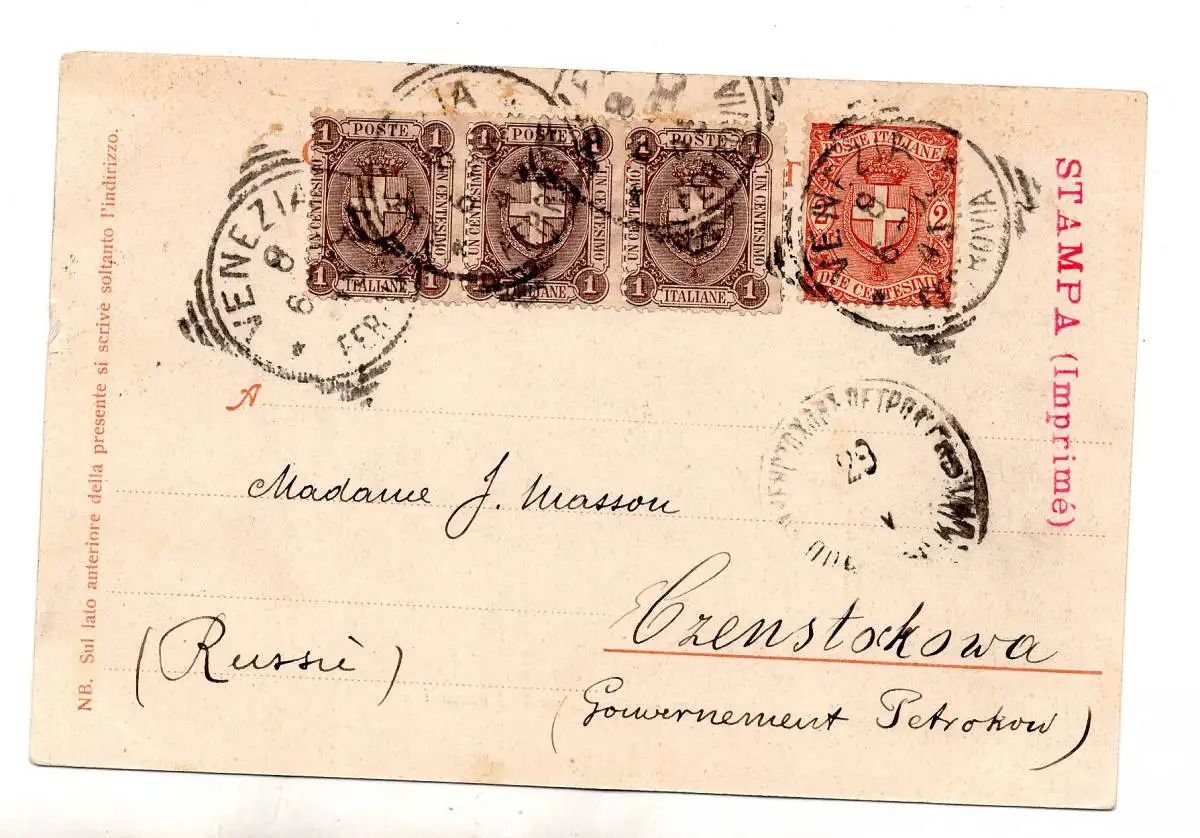 1 POSTE 1
UN CENTESIMO
UN CENTESIMO
1 ITALIANE 1
1 POSTE
UN CENTESIMO
UN CENTESIMO
ITALIANE 1
POSTE 1
UN CENTESIMO
UN CENTESIMO
1 ITALIANE 1
POSTE ITALIANE
2
DUE CENTESIMI
VENEZIA
8
6
FERROVIA
STAMPA (Imprimé)
NB. Sul lato anteriore della presente si scrive soltanto l'indirizzo.
A
29
Madame J. Masson
Czenstokowa
(Russie)
(Gouvernement Petrokow)